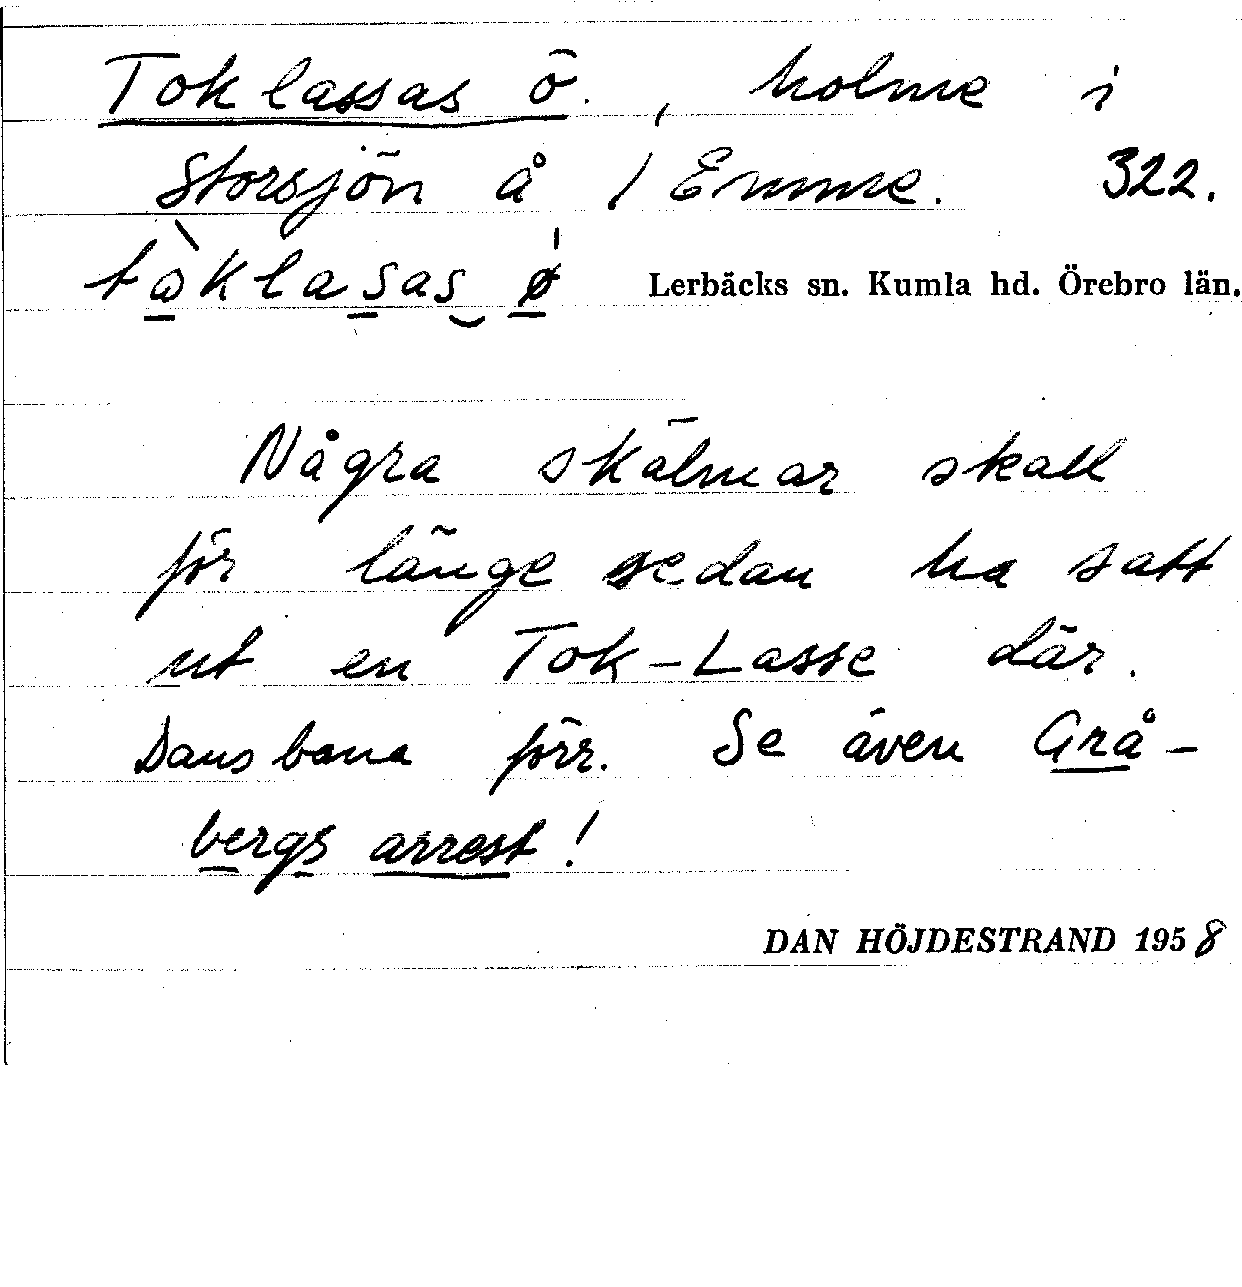 Toklassas ö., holme i
Storsjön å 1 Emme. 322.
tòklasas ø Lerbäcks sn. Kumla hd. Örebro län.
Några skälmar skall
för länge sedan ha satt
ut en Tok-Lasse där.
Dansbana förr. Se även Grå-
bergs arrest!
DAN HÖJDESTRAND 1958